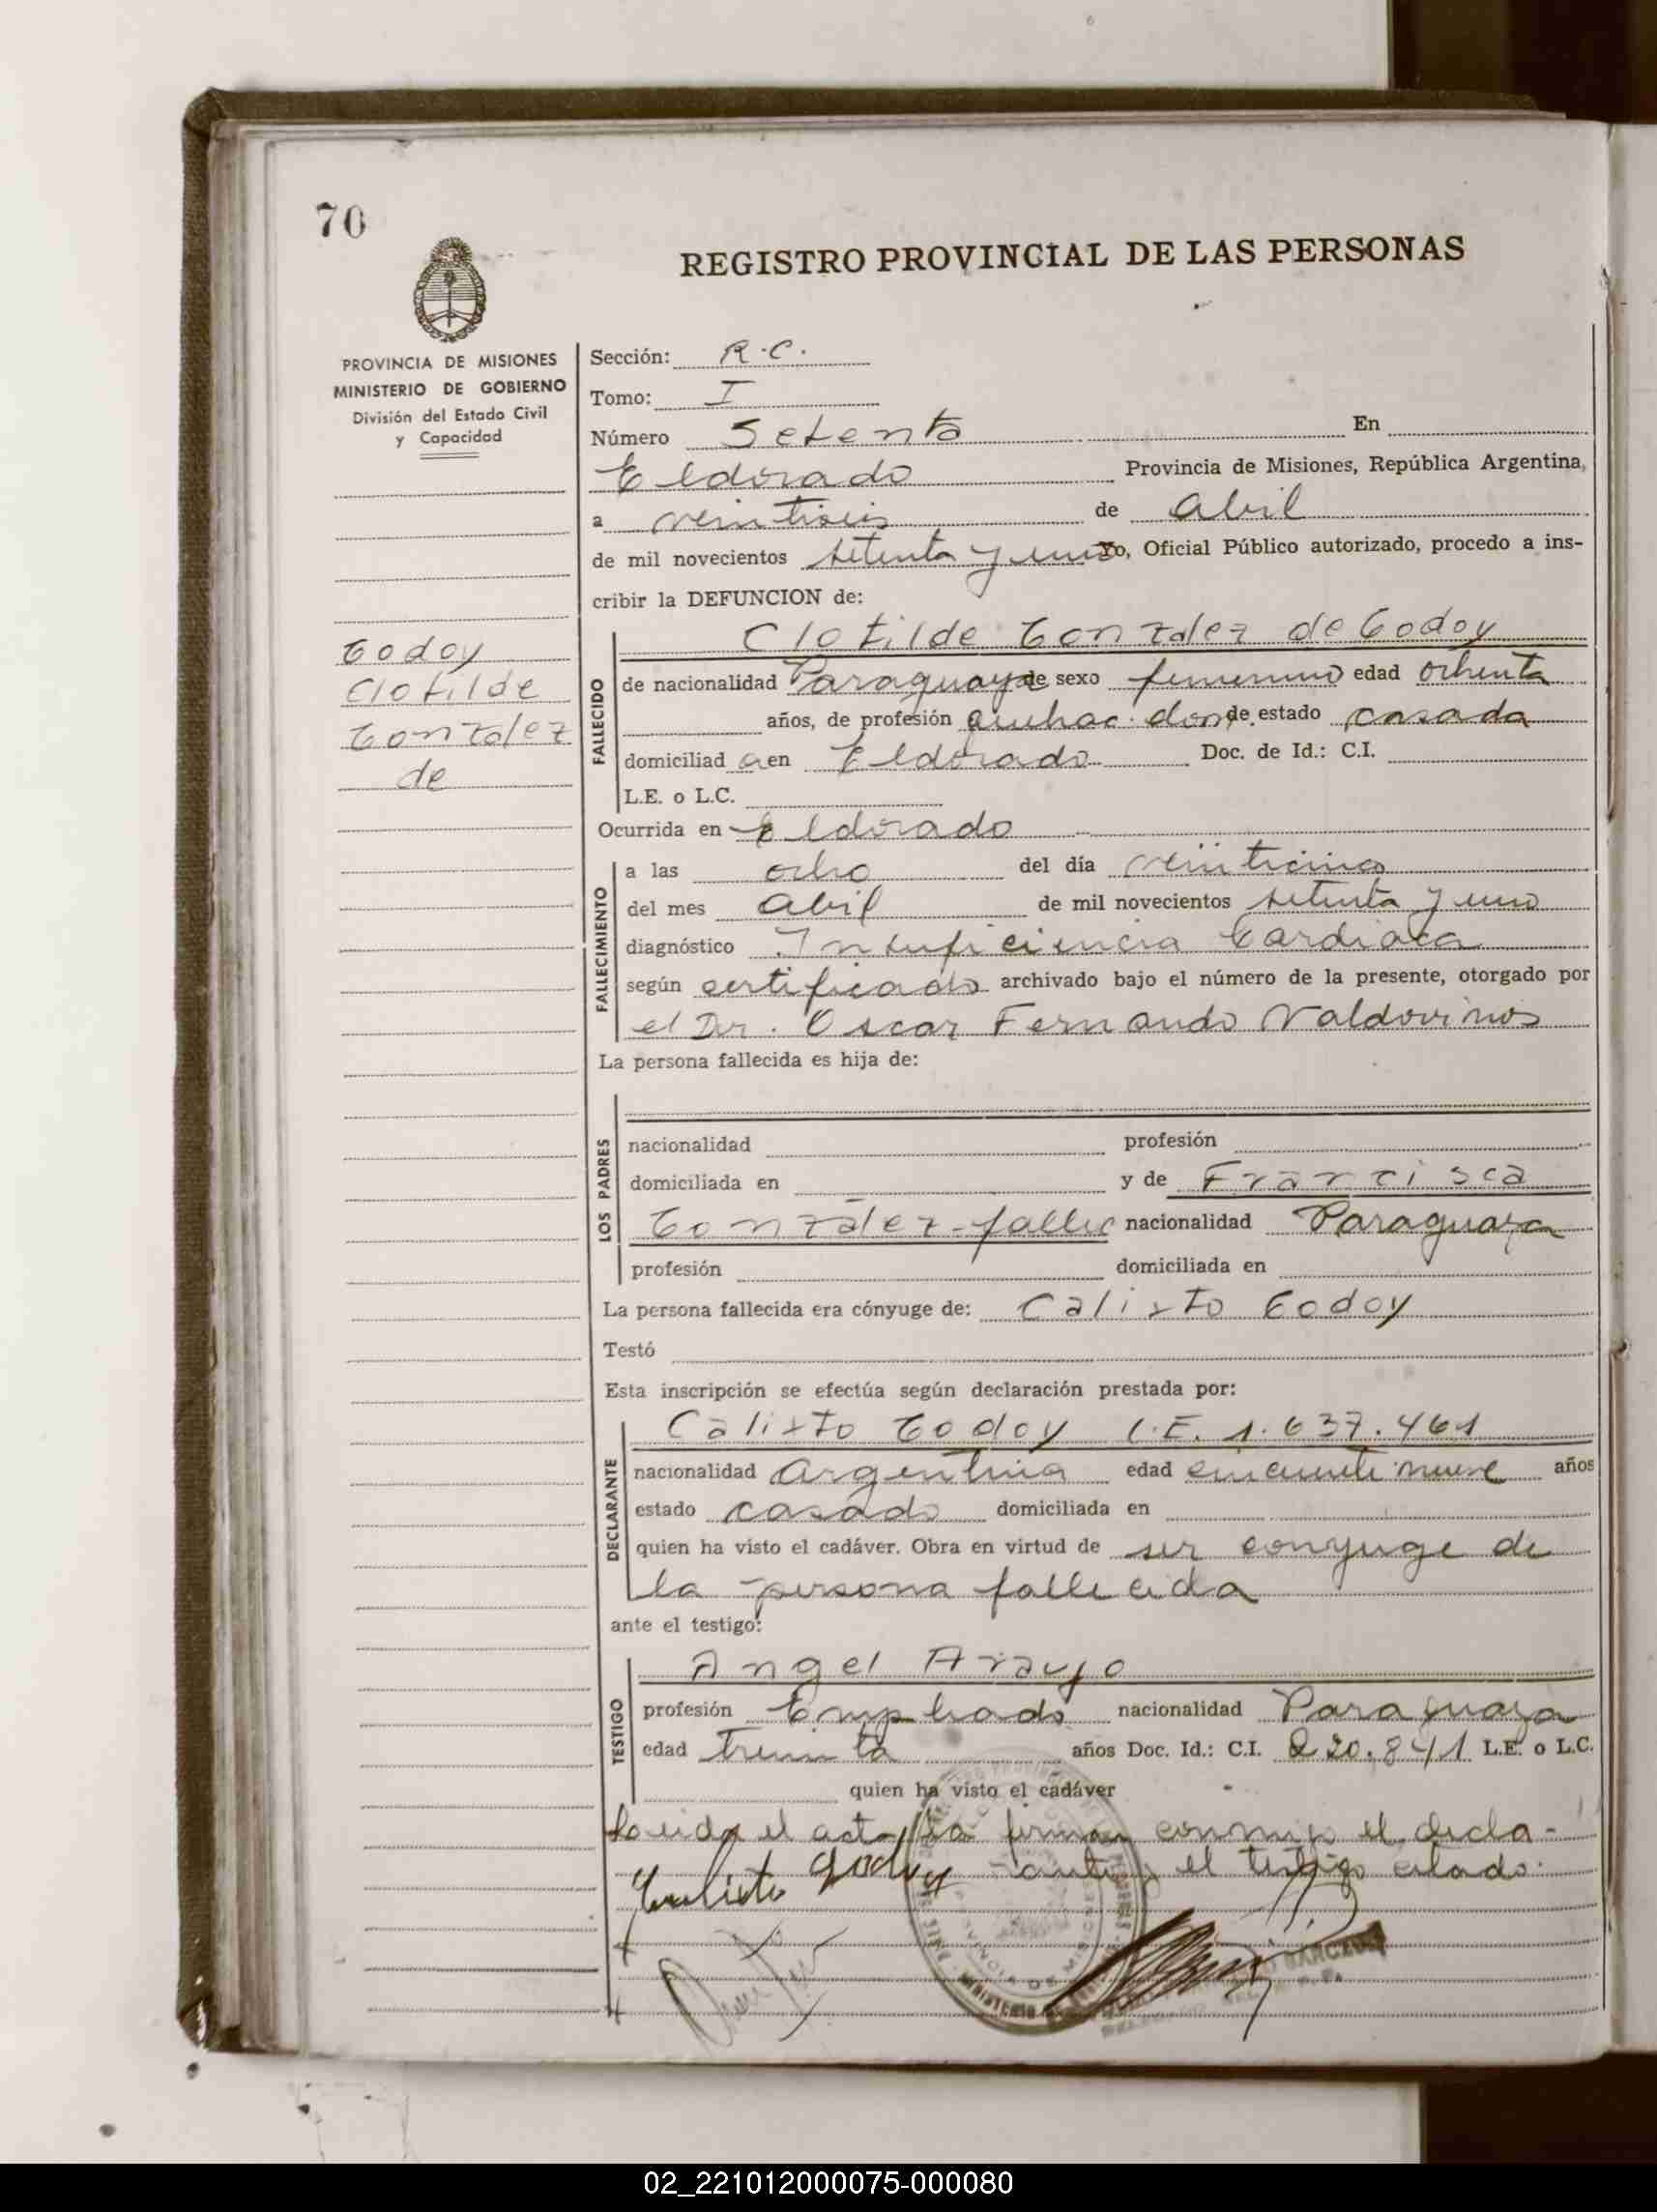 70
REGISTRO PROVINCIAL DE LAS PERSONAS
PROVINCIA DE MISIONES
MINISTERIO DE GOBIERNO
División del Estado Civil
y Capacidad
Godoy
Clotilde
Gonzalez
de
Sección: R.C.
Tomo: I
Número Setenta En
Eldorado Provincia de Misiones, República Argentina,
a veintiseis de abril
de mil novecientos setenta y uno Yo, Oficial Público autorizado, procedo a ins-
cribir la DEFUNCION de:
FALLECIDO
Clotilde Gonzalez de Godoy
de nacionalidad Paraguaya de sexo femenino edad ochenta
años, de profesión quehac. dom. de estado casada
domiciliad a en Eldorado Doc. de Id.: C.I.
L.E. o L.C.
Ocurrida en Eldorado
FALLECIMIENTO
a las ocho del día veinticinco
del mes abril de mil novecientos setenta y uno
diagnóstico Insuficiencia Cardiaca
según certificado archivado bajo el número de la presente, otorgado por
el Dr. Oscar Fernando Valdovinos
La persona fallecida es hija de:
LOS PADRES
nacionalidad profesión
domiciliada en y de Francisca
Gonzalez-fallec nacionalidad Paraguaya
profesión domiciliada en
La persona fallecida era cónyuge de: Calixto Godoy
Testó
Esta inscripción se efectúa según declaración prestada por:
DECLARANTE
Calixto Godoy L.E. 1.637.461
nacionalidad argentina edad cincuentinueve años
estado casado domiciliada en
quien ha visto el cadáver. Obra en virtud de ser conyuge de
la persona fallecida
ante el testigo:
TESTIGO
Angel Araujo
profesión Empleado nacionalidad Paraguaya
edad treinta años Doc. Id.: C.I. 220.841 L.E. o L.C.
quien ha visto el cadáver
Leida el acta la firman conmigo el decla-
rante y el testigo citado.
Calixto Godoy
02_221012000075-000080